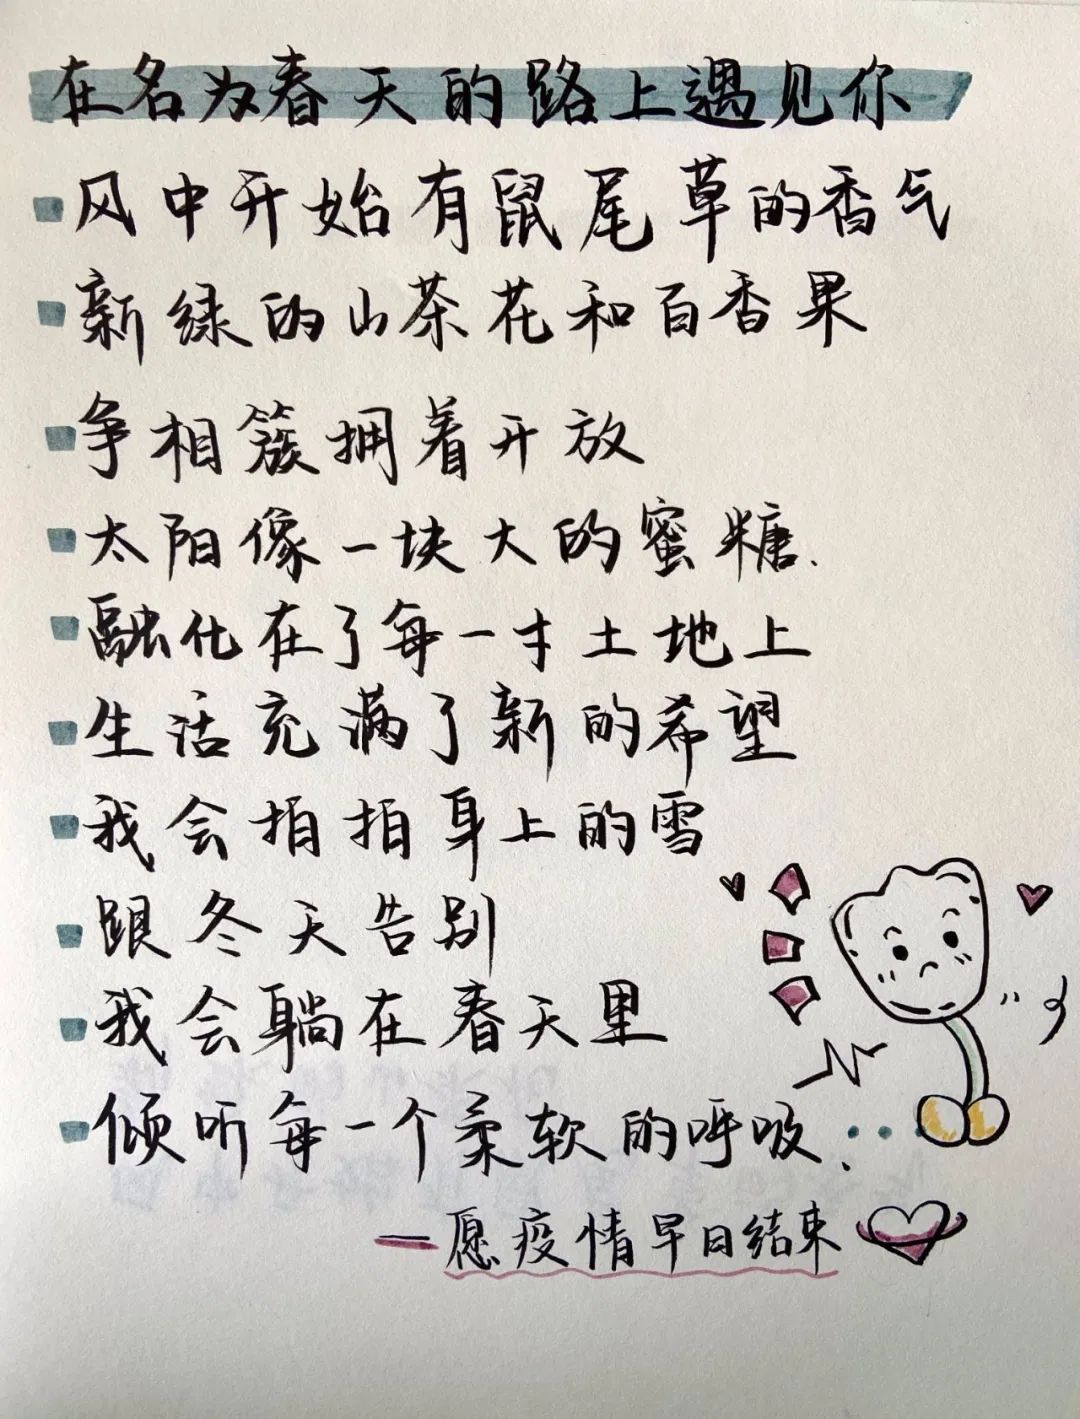 在名为春天的路上遇见你
风中开始有鼠尾草的香气
新绿的山茶花和百香果
争相簇拥着开放
太阳像一块大的蜜糖.
融化在了每一寸土地上
生活充满了新的希望
我会拍拍身上的雪
跟冬天告别
我会躺在春天里
倾听每一个柔软的呼吸.
—愿疫情早日结束